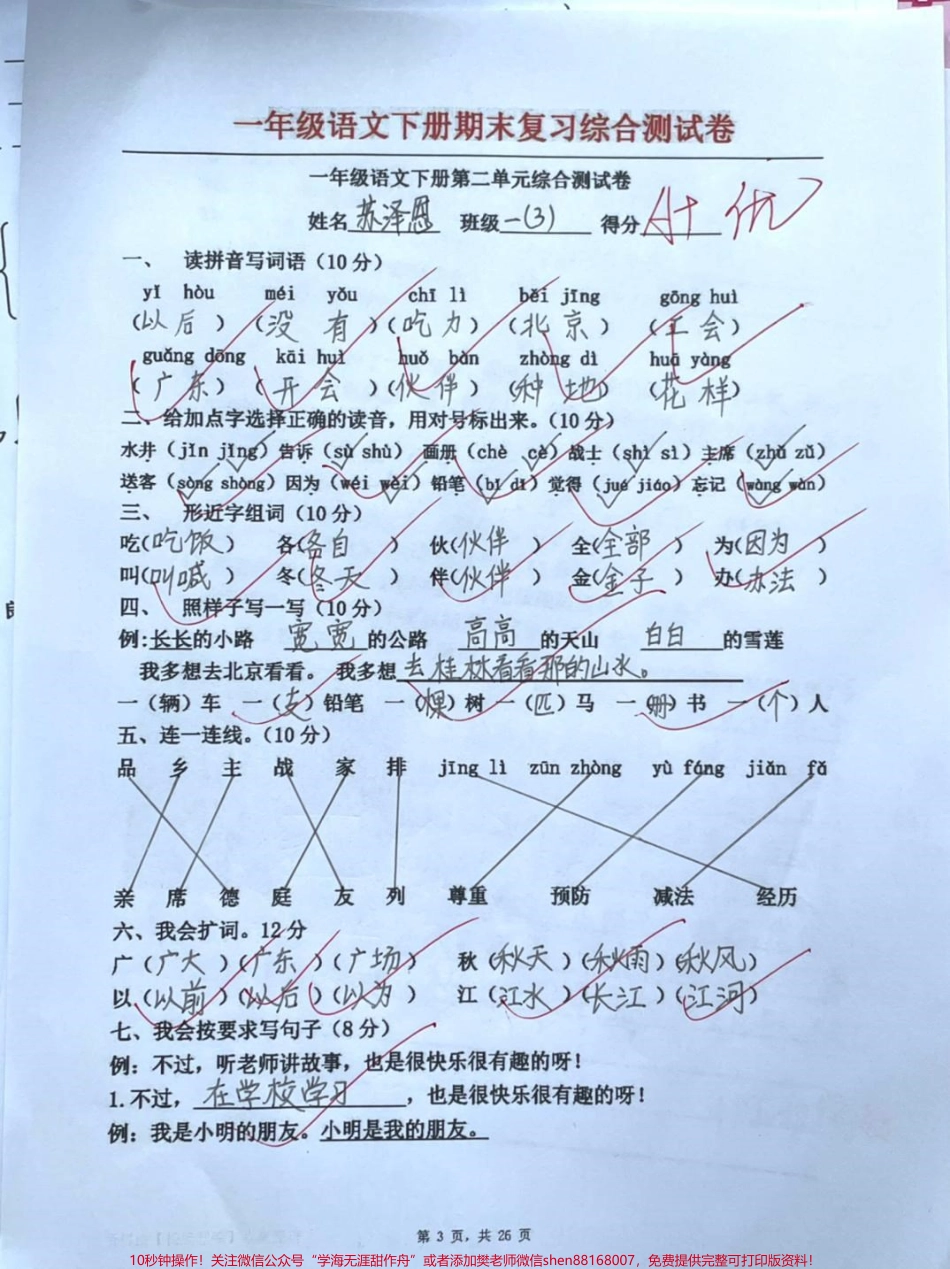 一年级语文下册期末复习综合测试卷
一年级语文下册第二单元综合测试卷
姓名苏泽恩 班级一(3) 得分A+ 优
一、 读拼音写词语（10分）
yǐ hòu méi yǒu chī lì běi jīng gōng huì
（以后）（没有）（吃力）（北京）（工会）
guǎng dōng kāi huì huǒ bàn zhòng dì huā yàng
（广东）（开会）（伙伴）（种地）（花样）
二、给加点字选择正确的读音，用对号标出来。（10分）
水井（jǐn jǐng）告诉（sù shù） 画册（chè cè）战士（shì sì）主席（zhǔ zǔ）
送客（sòng shòng）因为（wéi wèi）铅笔（bǐ dǐ）觉得（jué jiáo）忘记（wàng wàn）
三、 形近字组词（10分）
吃（吃饭） 各（各自） 伙（伙伴） 全（全部） 为（因为）
叫（叫喊） 冬（冬天） 伴（伙伴） 金（金子） 办（办法）
四、 照样子写一写（10分）
例:长长的小路 宽宽的公路 高高的天山 白白的雪莲
我多想去北京看看。 我多想去桂林看看那的山水。
一（辆）车 一（支）铅笔 一（棵）树 一（匹）马 一（册）书 一（个）人
五、连一连线。（10分）
品 乡 主 战 家 排 jīng lì zūn zhòng yù fáng jiǎn fǎ
亲 席 德 庭 友 列 尊重 预防 减法 经历
六、我会扩词。12分
广（广大）（广东）（广场） 秋（秋天）（秋雨）（秋风）
以（以前）（以后）（以为） 江（江水）（长江）（江河）
七、我会按要求写句子（8分）
例：不过，听老师讲故事，也是很快乐很有趣的呀！
1.不过，在学校学习，也是很快乐很有趣的呀！
例：我是小明的朋友。小明是我的朋友。
第 3 页，共 26 页
10秒钟操作！关注微信公众号“学海无涯甜作舟”或者添加樊老师微信shen88168007，免费提供完整可打印版资料！